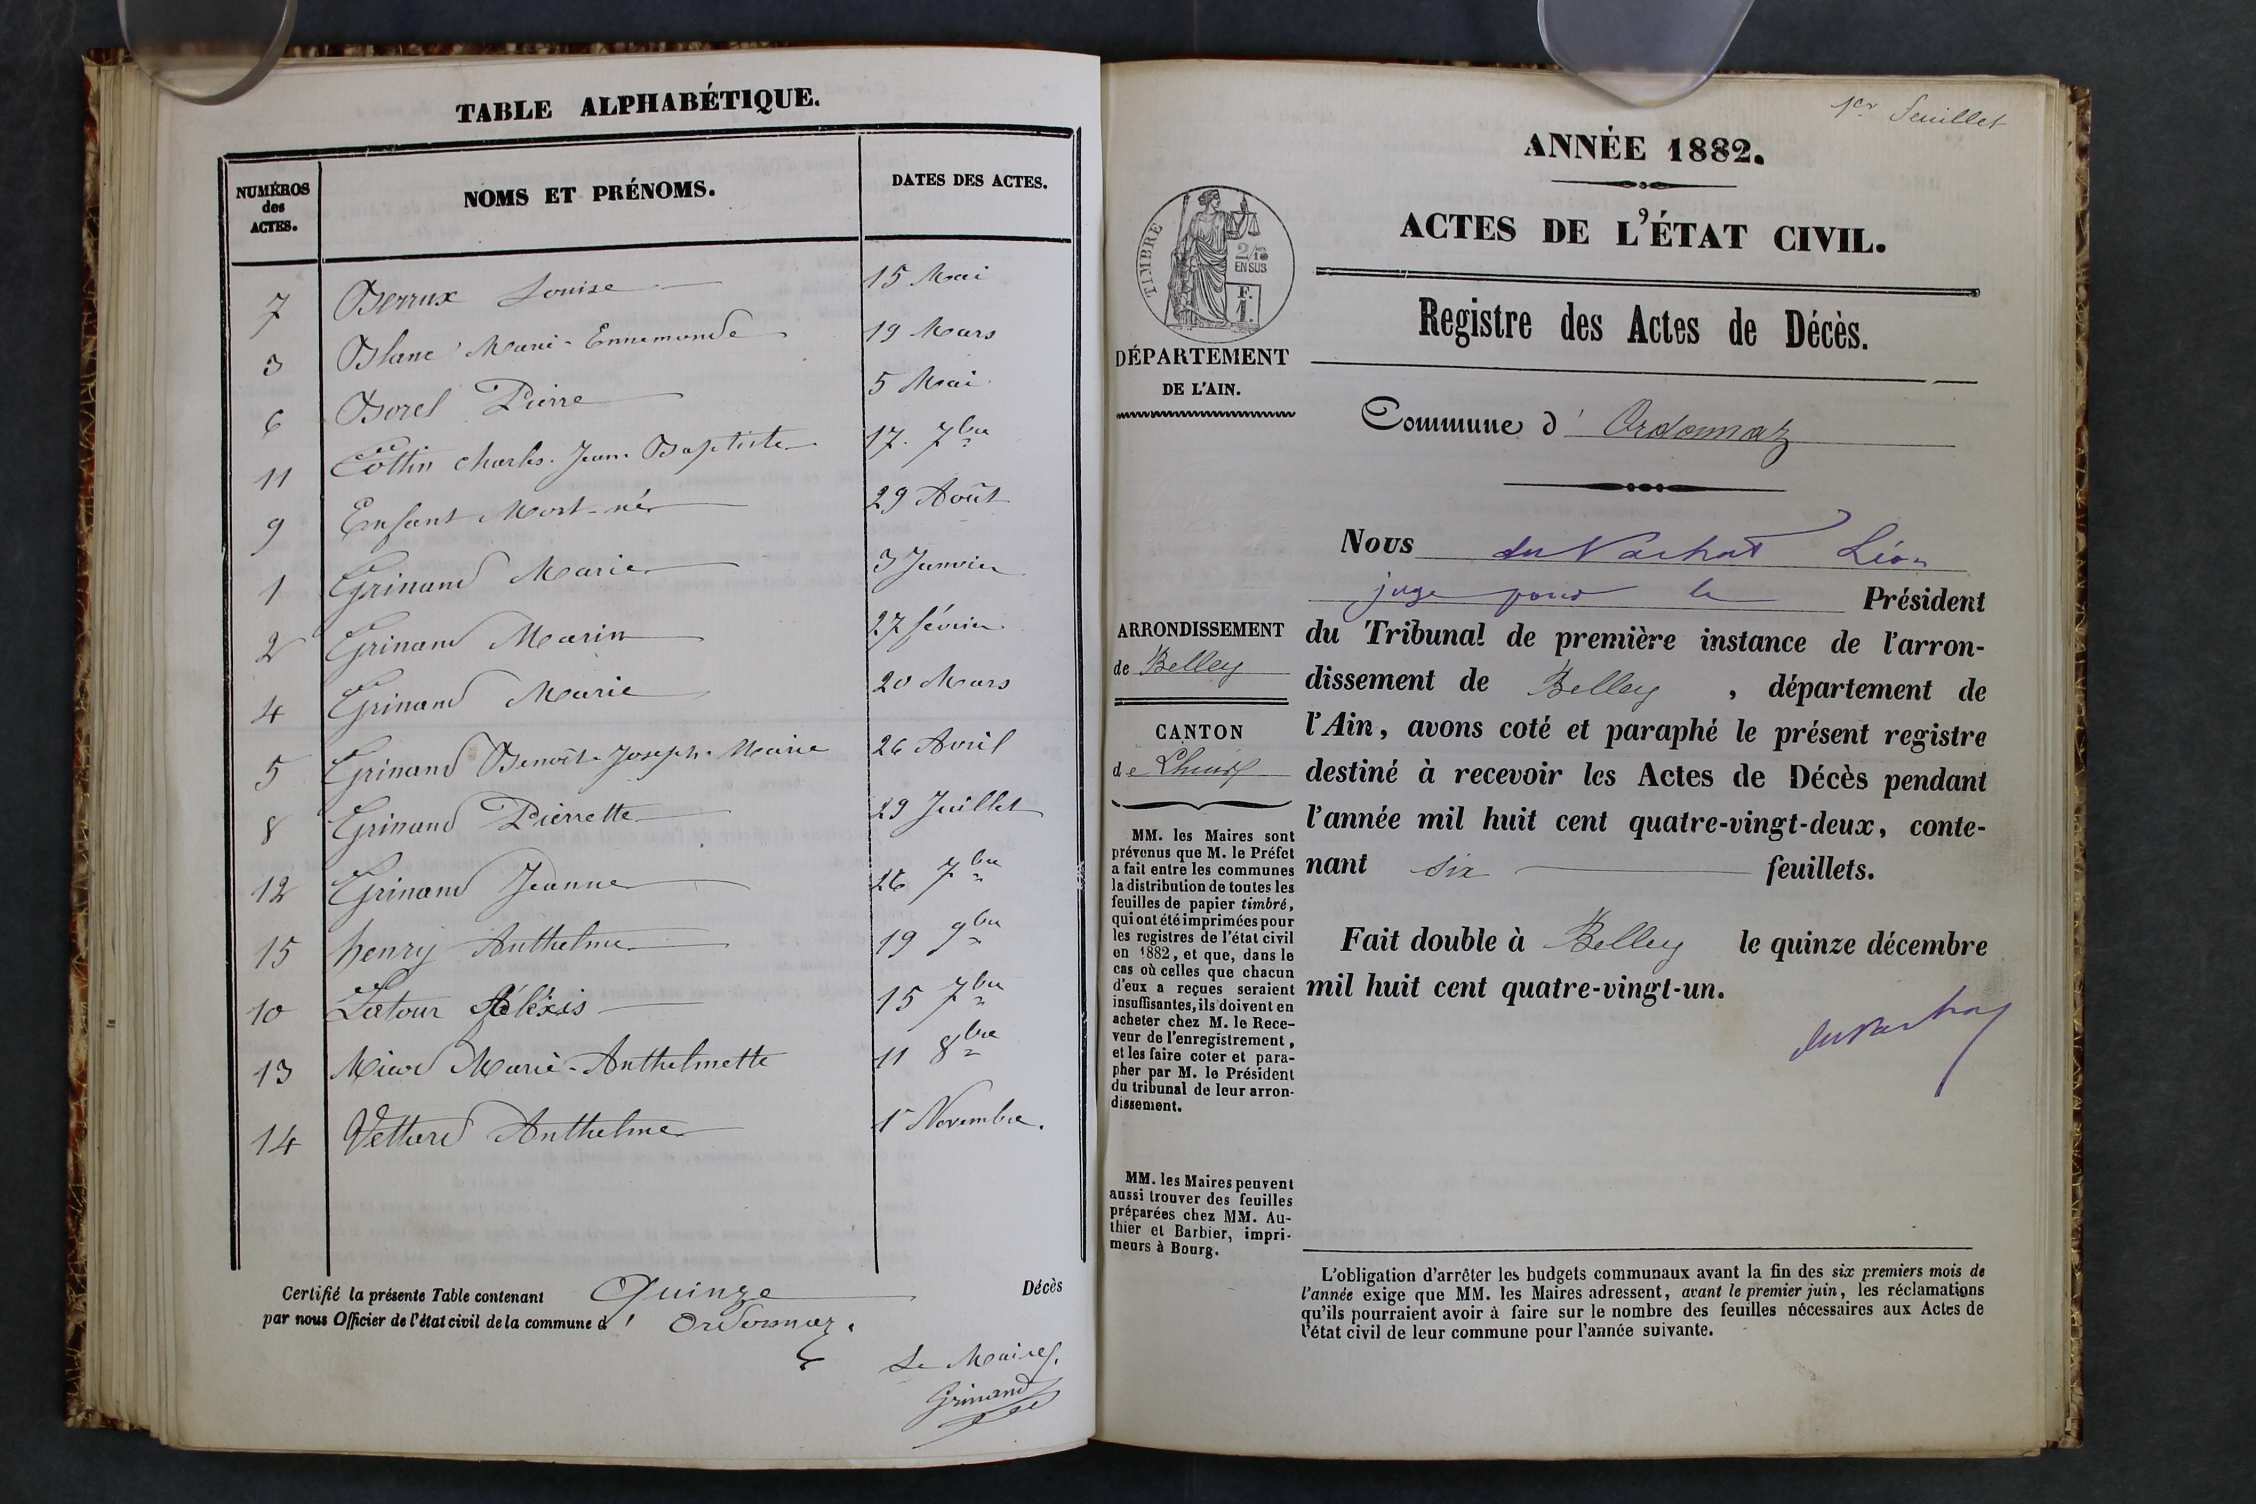 TABLE ALPHABÉTIQUE.
NUMÉROS des ACTES. NOMS ET PRÉNOMS. DATES DES ACTES.
7 Berrux Louise 15 Mai
3 Blanc Marie-Ennemonde 19 Mars
6 Borel Pierre 5 Mai
11 Cottin Charles Jean Baptiste 17. 7bre
9 Enfant Mort-né 29 Août
1 Grinand Marie 3 Janvier
2 Grinand Marin 27 février
4 Grinand Marie 20 Mars
5 Grinand Benoît-Joseph-Marie 26 Avril
8 Grinand Pierrette 29 Juillet
12 Grinand Jeanne 26 7bre
15 henry Anthelme 19 9bre
10 Latour Aléxis 15 7bre
13 Miard Marie-Anthelmette 11 8bre
14 Vettard Anthelme 1r Novembre.
Certifié la présente Table contenant Quinze Décès
par nous Officier de l'état civil de la commune d' Ordonnaz.
Le Maire,
Grinand
1er Feuillet
ANNÉE 1882.
ACTES DE L'ÉTAT CIVIL.
Registre des Actes de Décès.
TIMBRE
2/10
EN SUS
F.
1.
DÉPARTEMENT
DE L'AIN.
Commune d' Ordonnaz
ARRONDISSEMENT
de Belley
CANTON
de Lhuis
MM. les Maires sont
prévenus que M. le Préfet
a fait entre les communes
la distribution de toutes les
feuilles de papier timbré,
qui ont été imprimées pour
les registres de l'état civil
en 1882, et que, dans le
cas où celles que chacun
d'eux a reçues seraient
insuffisantes, ils doivent en
acheter chez M. le Rece-
veur de l'enregistrement,
et les faire coter et para-
pher par M. le Président
du tribunal de leur arron-
dissement.
MM. les Maires peuvent
aussi trouver des feuilles
préparées chez MM. Au-
thier et Barbier, impri-
meurs à Bourg.
Nous du Vachat Léon
juge pour le Président
du Tribunal de première instance de l'arron-
dissement de Belley, département de
l'Ain, avons coté et paraphé le présent registre
destiné à recevoir les Actes de Décès pendant
l'année mil huit cent quatre-vingt-deux, conte-
nant six feuillets.
Fait double à Belley le quinze décembre
mil huit cent quatre-vingt-un.
duVachat
L'obligation d'arrêter les budgets communaux avant la fin des six premiers mois de
l'année exige que MM. les Maires adressent, avant le premier juin, les réclamations
qu'ils pourraient avoir à faire sur le nombre des feuilles nécessaires aux Actes de
l'état civil de leur commune pour l'année suivante.